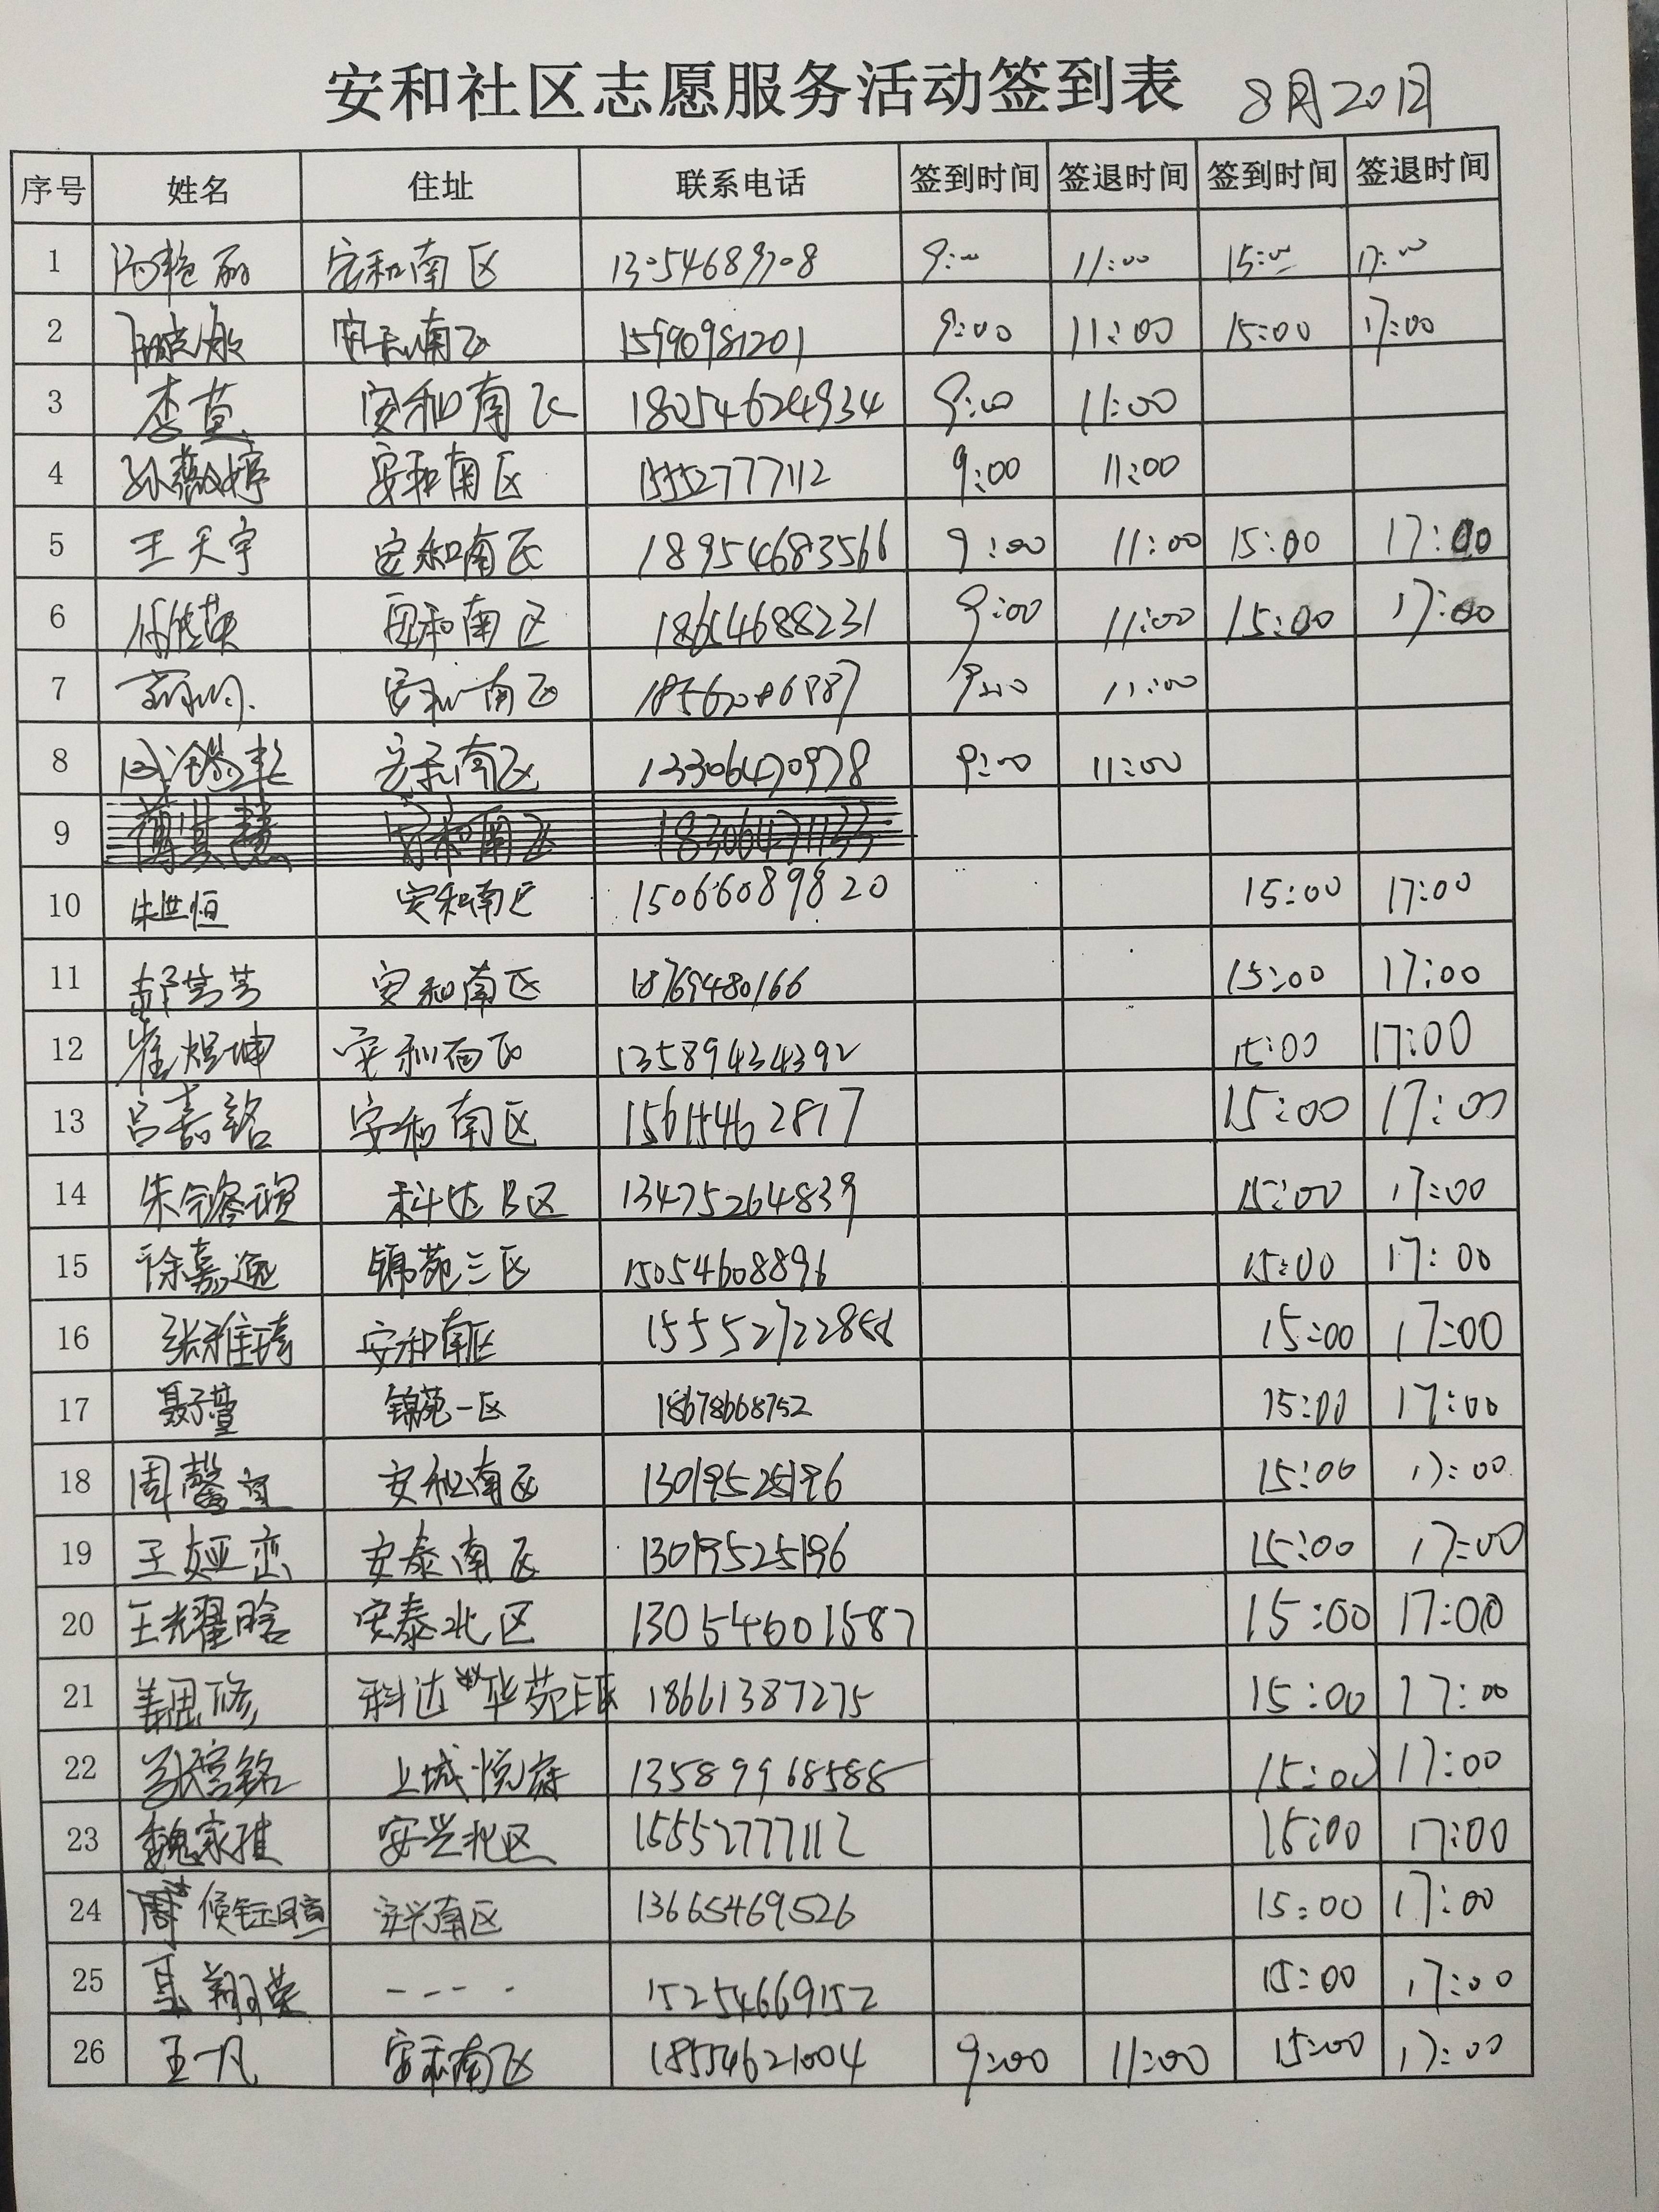 安和社区志愿服务活动签到表 8月20日
序号 姓名 住址 联系电话 签到时间 签退时间 签到时间 签退时间
1 安和南区 13054689708 9:00 11:00 15:00 17:00
2 安和南区 15990981201 9:00 11:00 15:00 17:00
3 李萱 安和南区 18054624934 9:00 11:00
4 孙薇婷 安和南区 15552777112 9:00 11:00
5 王天宇 安和南区 18954683566 9:00 11:00 15:00 17:00
6 安和南区 18654688231 9:00 11:00 15:00 17:00
7 安和南区 9:00 11:00
8 安和南区 13306470978 9:00 11:00
9 安和南区 18306471133
10 朱世恒 安和南区 15066089820 15:00 17:00
11 郝芳芳 安和南区 18769480166 15:00 17:00
12 崔煜坤 安和南区 13589434392 15:00 17:00
13 吕嘉铭 安和南区 15:00 17:00
14 科达B区 13475264839 15:00 17:00
15 徐嘉逸 锦苑三区 15054608896 15:00 17:00
16 张雅琦 安和南区 15:00 17:00
17 聂子萱 锦苑一区 18678668752 15:00 17:00
18 周馨宜 安和南区 13019525196 15:00 17:00
19 王娅恋 安泰南区 13019525196 15:00 17:00
20 王耀晗 安泰北区 13054601587 15:00 17:00
21 姜思修 科达华苑E区 18661387275 15:00 17:00
22 上城悦府 13589968588 15:00 17:00
23 魏家 安兴北区 15552777112 15:00 17:00
24 安兴南区 13665469526 15:00 17:00
25 ---- 15254669152 15:00 17:00
26 王一凡 安和南区 18554621004 9:00 11:00 15:00 17:00